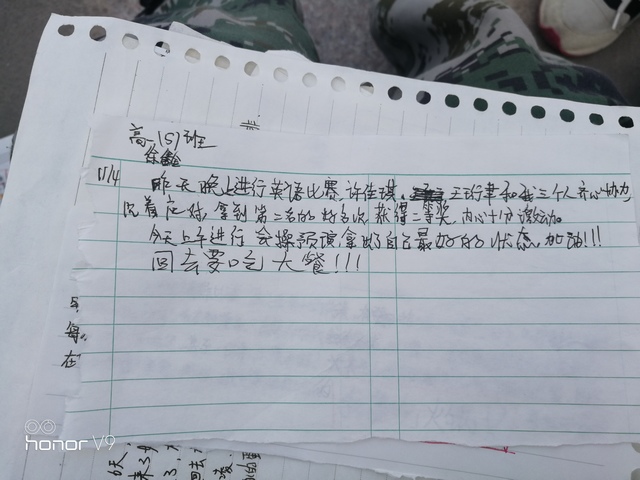 高一(5)班
徐鑫
11/4
昨天晚上进行英语比赛,许佳琪、王珩聿和我三个人齐心协力
沉着应对,拿到第二名的好名次,获得二等奖,内心十分激动。
今天上午进行会操预演,拿出了自己最好的状态,加油!!!
回去要吃大餐!!!
每
在
honor V9